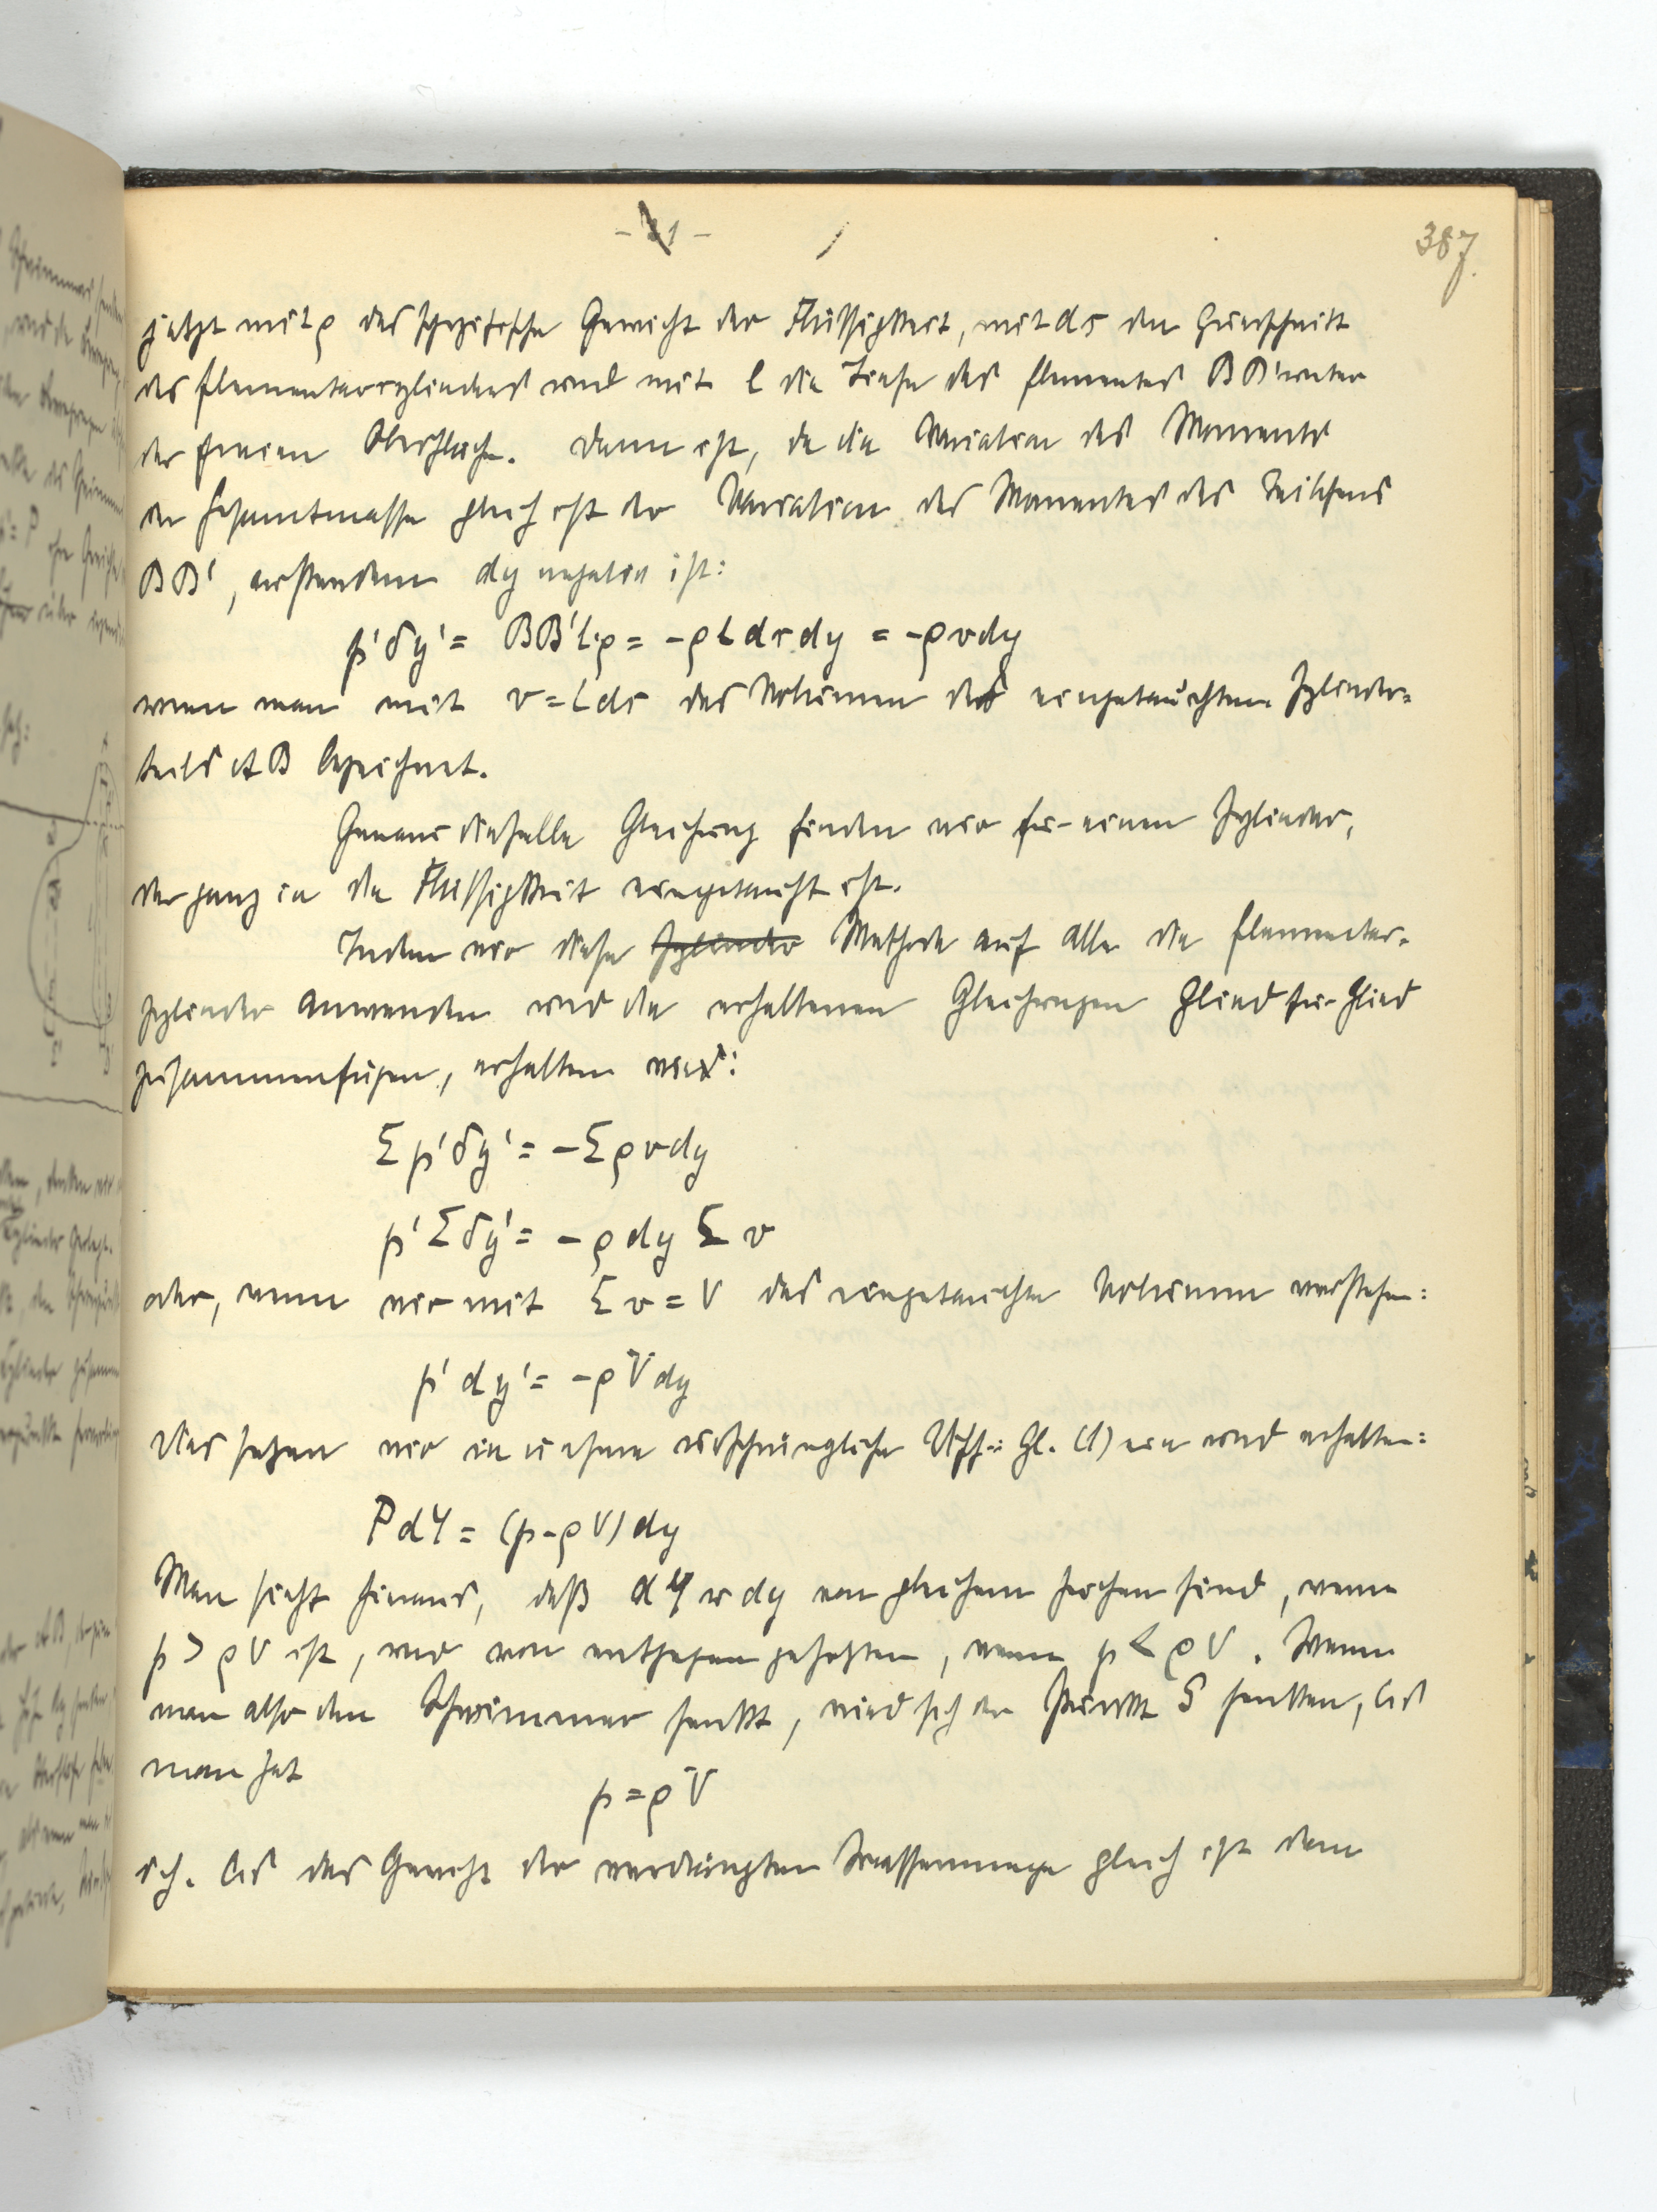 - 21 -
387.
jetzt mit ρ das spezifische Gewicht der Flüssigkeit, mit ds den Querschnitt
des Elementarzylinders und mit l die Tiefe des Elementes BB' unter
der freien Oberfläche. Dann ist, da die Variation des Moments
der Gesamtmasse gleich ist der Variation des Momentes des Teilchens
BB', außerdem dy negativ ist:
p'δy' = BB'lρ = -ρldsdy = -ρvdy
wenn man mit v = lds das Volumen des eingetauchten Zylinder=
teils AB bezeichnet.
Genau dieselbe Gleichung finden wir für einen Zylinder,
der ganz in die Flüssigkeit eingetaucht ist.
Indem wir diese Zylinder Methode auf alle die Elementar=
zylinder anwenden und die erhaltenen Gleichungen Glied für Glied
zusammenfügen, erhalten wir:
Σp'δy' = -Σρvdy
p'Σδy' = -ρdyΣv
oder, wenn wir mit Σv = V das eingetauchte Volumen verstehen:
p'dy' = -ρVdy
Das setzen wir in unsere ursprüngliche Gl. (1) ein und erhalten:
PdY = (p-ρV)dy
Man sieht hieraus, daß dY u dy von gleichem Zeichen sind, wenn
p > ρV ist, und von entgegengesetzten, wenn p < ρV. Wenn
man also den Schwimmer senkt, wird sich der Punkt S senken, bis
man hat
p = ρV
d.h. bis das Gewicht der verdrängten Wassermenge gleich ist dem